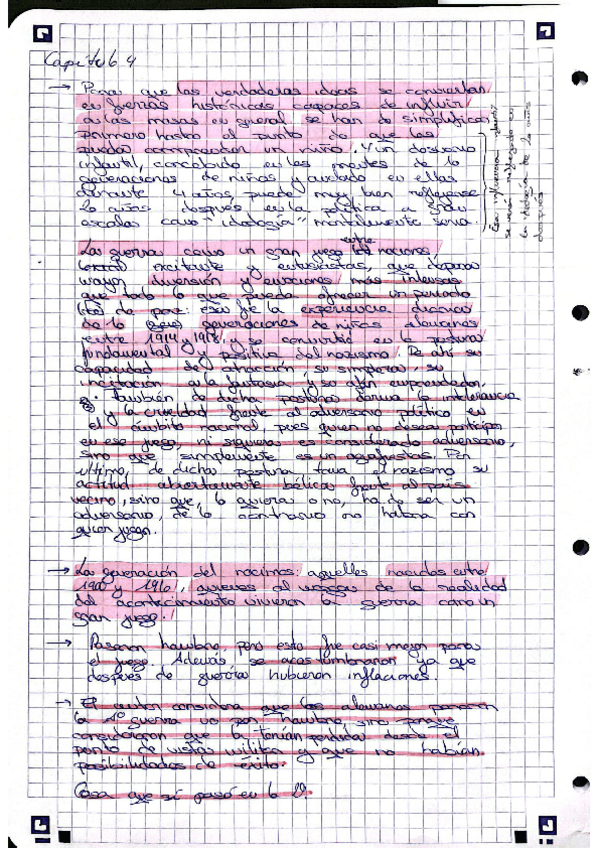 Capítulo 4
→ Parar que las verdaderas ideas se conviertan
en fuerzas históricas capaces de influir
a las masas en general se han de simplificar
primero hasta el punto de que las
pueda comprender un niño. Y un desvario
infantil, concebido en las mentes de 10
generaciones de niños y anclado en ellas
durante 4 años, puede muy bien reflejarse
20 años después en la política a gran
escala como "ideología" mortalmente seria.
Esa influencia infantil
se verá reflejada en
la ideología de 20 años
después
La guerra como un gran juego entre naciones
excitante y entusiasta, que depara
mayor diversión y emociones más intensas
que todo lo que pueda ofrecer un periodo
de paz: esa fue la experiencia diaria
de 10 generaciones de niños alemanes
entre 1914 y 1918, y se convirtió en la postura
fundamental y positiva del nazismo. De ahí su
capacidad de atracción, su simpleza, su
incitación a la fantasia y su afán emprendedor.
También de dicha postura toma la intolerancia
y la crueldad frente al adversario político en
el ámbito nacional, pues quien no desea participar
en ese juego, ni siquiera es considerado adversario,
sino que simplemente es un aguafiestas. Por
ultimo, de dicha postura toma el nazismo su
actitud abiertamente bélica frente al país
vecino, sino que, lo quiera o no, ha de ser un
adversario, de lo contrario no habria con
quien jugar.
→ La generación del nazismo: aquellos nacidos entre
1900 y 1910, quienes al margen de la realidad
del acontecimiento vivieron la guerra como un
gran juego.
→ Pasaron hambre, pero esto fue casi mejor para
el juego. Además se acostumbraron ya que
después de guerra hubieron inflaciones.
→ El autor considera que los alemanes perdieron
la 1º guerra no por hambre, sino porque
consideraron que la tenían perdida desde el
punto de vista militar y que no habían
posibilidades de éxito.
Cosa que sí pasó en la 2º.